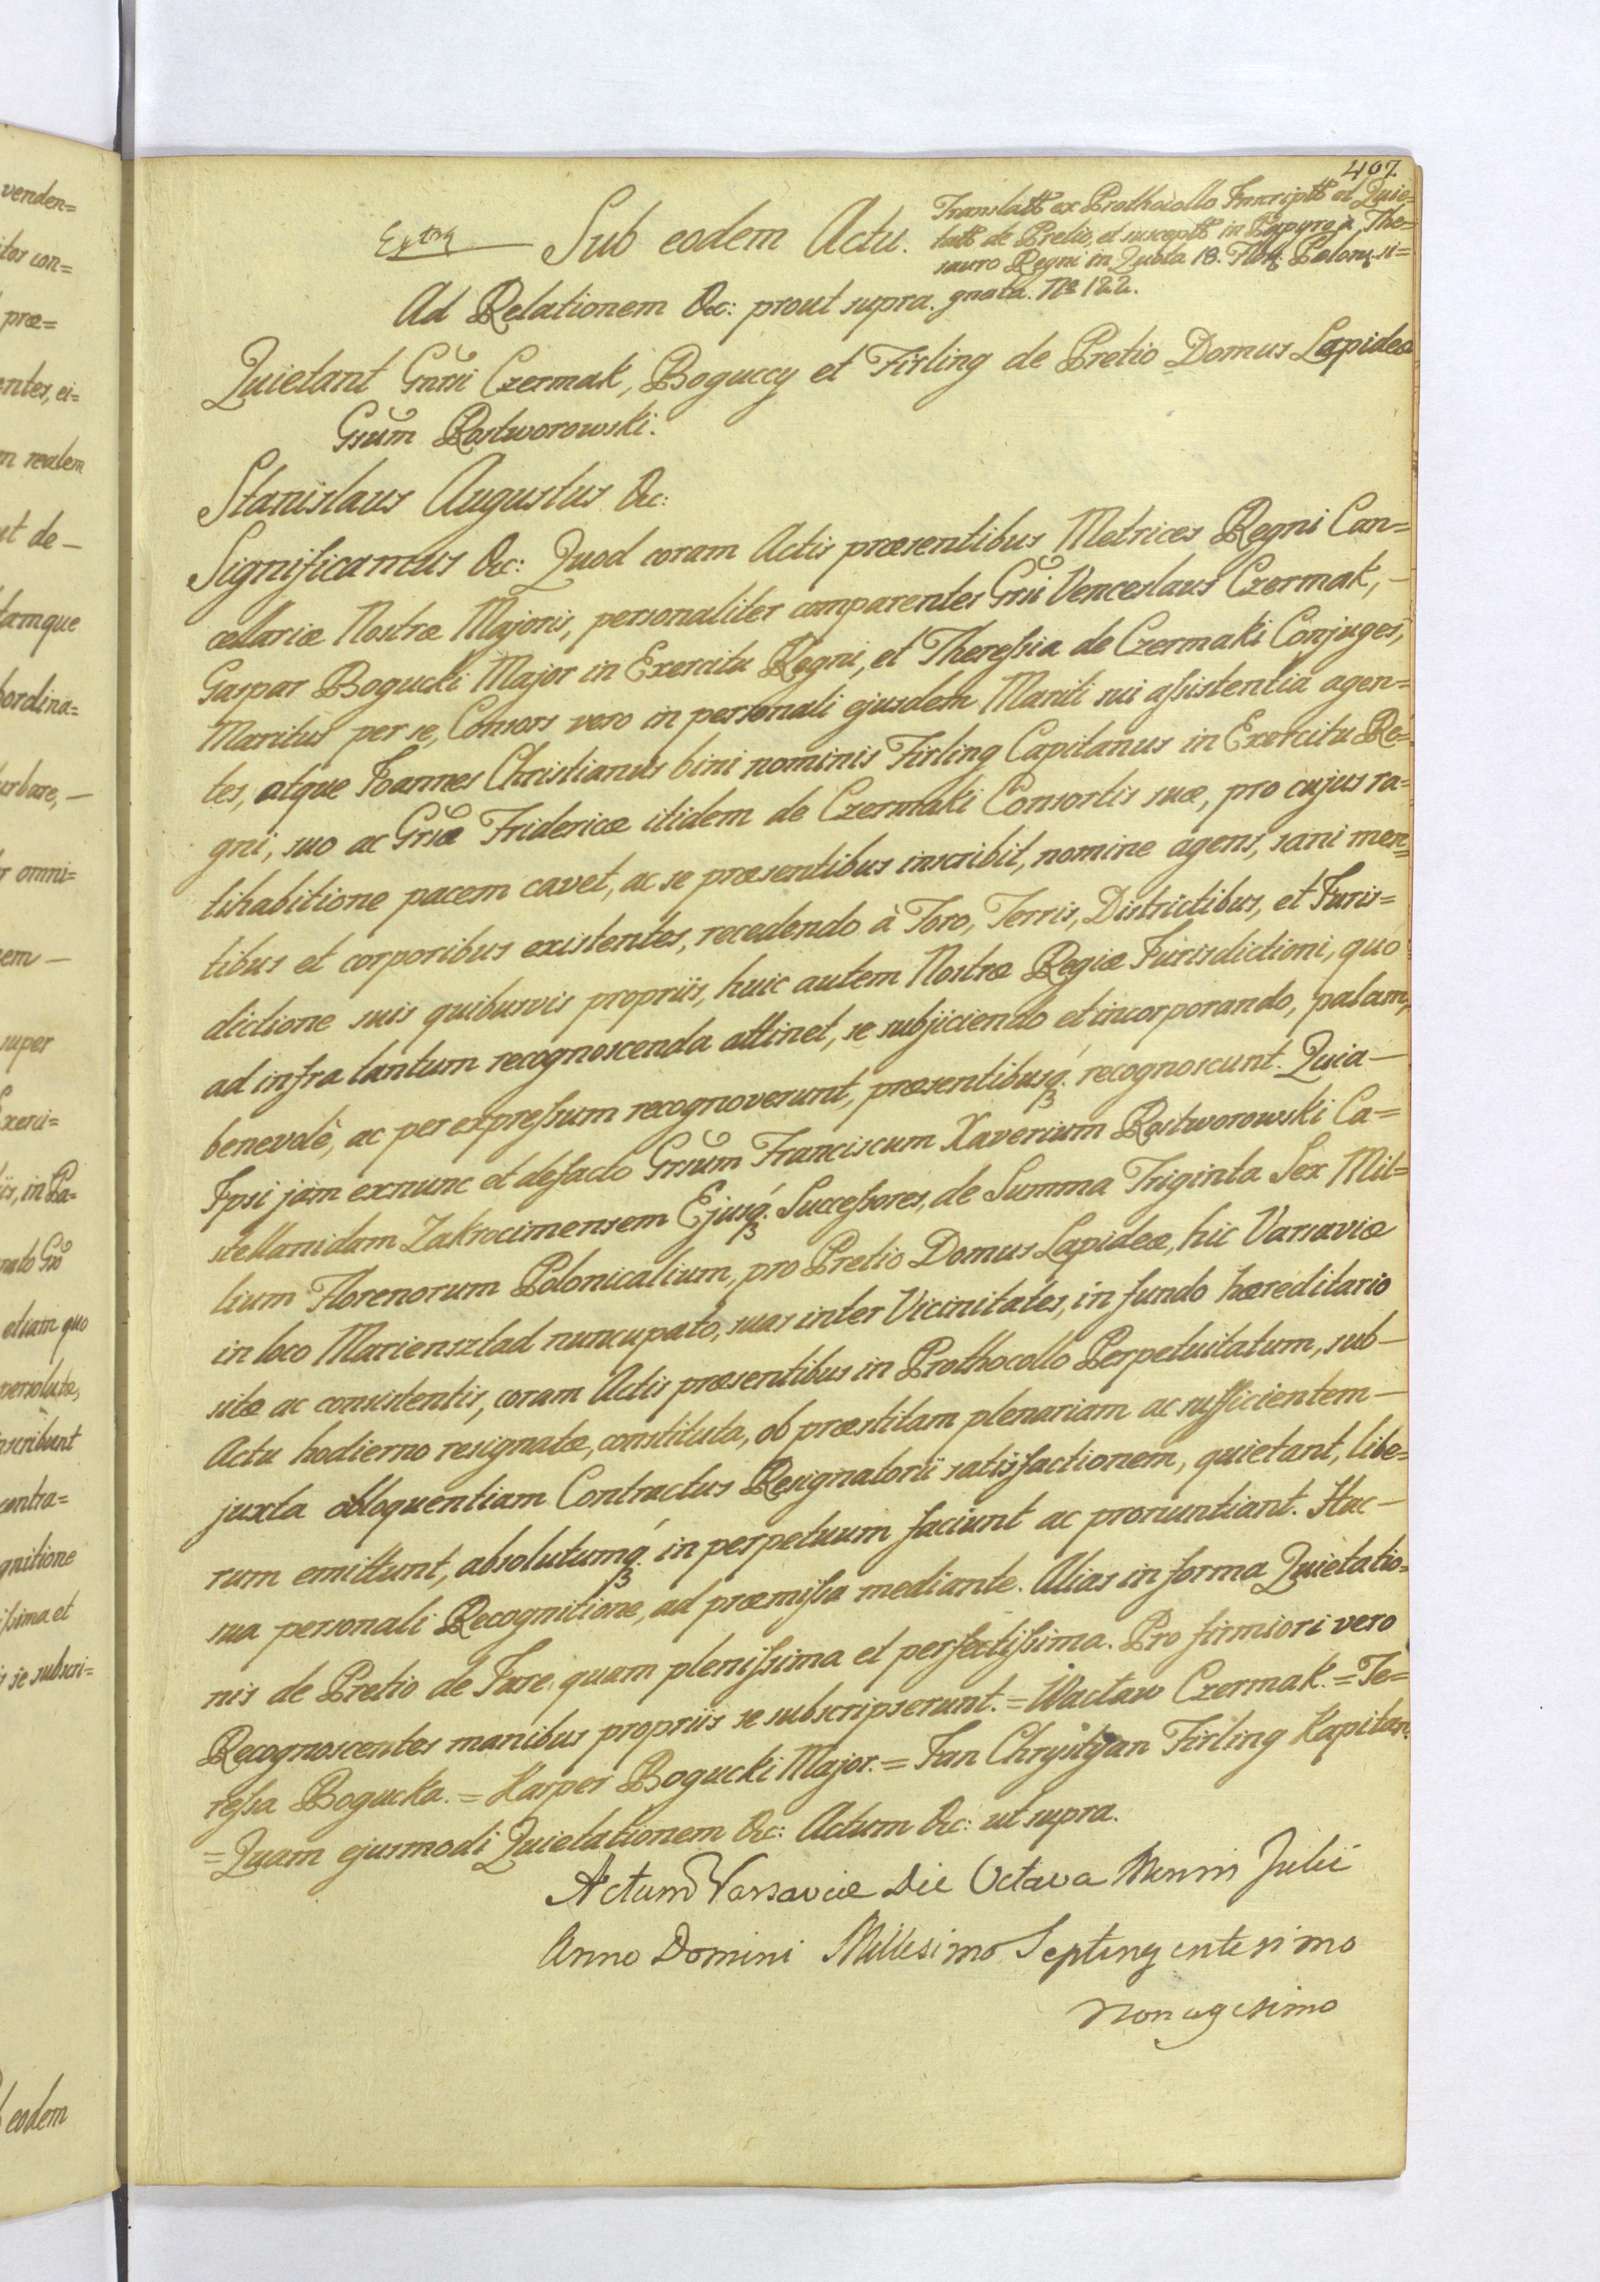 407.
Extra — Sub eodem Actu.
Translatt ex Prothocollo Inscriptt et Quie=
tatt de Pretio, et susceptt in Papyro à The=
sauro Regni in Quota 18. Flor: Polon: si=
gnata. No 122.
Ad Relationem &c: prout supra.
Quietant Gnrsi Czermak, Boguccy et Firling de Pretio Domus Lapideæ
Grsum Rostworowski.
Stanislaus Augustus &c:
Significamus &c: Quod coram Actis præsentibus Metrices Regni Can=
cellariæ Nostræ Majoris, personaliter comparentes Grsi Venceslaus Czermak, —
Gaspar Bogucki Major in Exercitu Regni, et Theressia de Czermaki Conjuges,
Maritus per se, Consors vero in personali ejusdem Mariti sui assistentiâ agen=
tes, atque Joannes Christianus bini nominis Firling Capitanus in Exercitu Re=
gni, suo ac Grsæ Fridericæ itidem de Czermaki Consortis suæ, pro cujus ra=
tihabitione pacem cavet, ac se præsentibus inscribit, nomine agens, sani men=
tibus et corporibus existentes, recedendo à Foro, Terris, Districtibus, et Juris=
dictione suis quibusvis propriis, huic autem Nostræ Regiæ Jurisdictioni, quò
ad infra tantum recognoscenda attinet, se subjiciendo et incorporando, palam,
benevolè, ac per expressum recognoverunt, præsentibusq; recognoscunt. Quia —
Ipsi jam exnunc et defacto Grsum Franciscum Xaverium Rostworowski Ca=
stellanidam Zakrocimensem Ejusq; Successores, de Summa Triginta Sex Mil=
lium Florenorum Polonicalium, pro Pretio Domus Lapideæ, hic Varsaviæ
in loco Mariensztad nuncupato, suas inter Vicinitates, in fundo hæreditario
sitæ ac consistentis, coram Actis præsentibus in Prothocollo Perpetuitatum, sub —
Actu hodierno resignatæ, constituta, ob præstitam plenariam ac sufficientem —
juxta obloquentiam Contractus Resignatorii satisfactionem, quietant, libe=
rum emittunt, absolutumq; in perpetuum faciunt ac pronuntiant. Hac —
sua personali Recognitione, ad præmissa mediante. Alias in forma Quietatio=
nis de Pretio de Jure quam plenissima et perfectissima. Pro firmiori vero
Recognoscentes manibus propriis se subscripserunt. = Wacław Czermak. = Te=
ressa Bogucka. = Kasper Bogucki Major. = Jan Chrystyan Firling Kapitan.
= Quam ejusmodi Quietationem &c: Actum &c: ut supra.
Actum Varsaviæ Die Octava Mensis Julii
Anno Domini Millesimo Septingentesimo
Nonagesimo
venden=
itos con=
præ=
entes, ei=
m realem
et de —
tamque
bordina=
urbare, —
r omni=
em —
super
Exerci=
iis, in Pa=
nato Gro
etiam quo
persolutæ,
nscribunt
contra=
gnitione
issima et
s se subscri=
b eodem